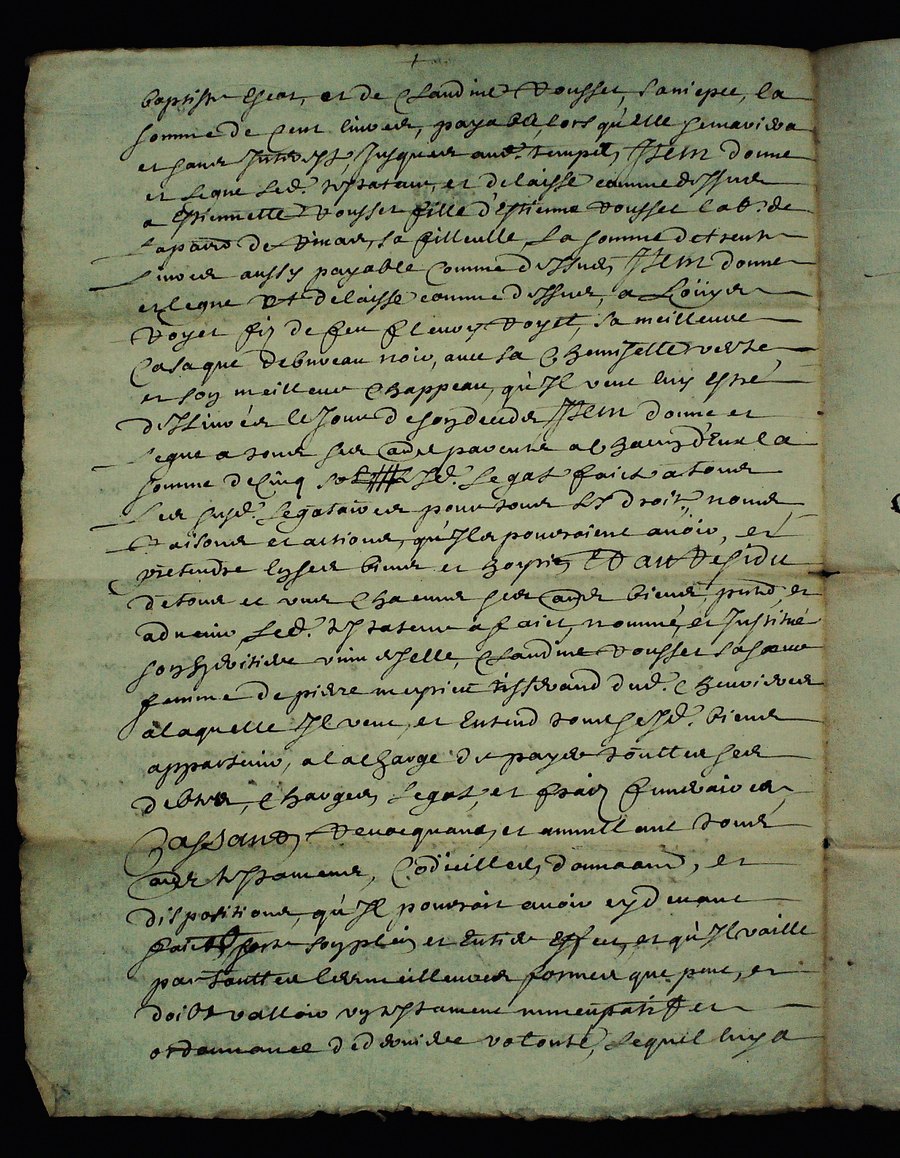 baptiste et de Claudine Rousset, sa niepce, la
somme de cent livres, payable, lors qu'elle se mariera
et sans Interest, Jusques aud. temps, Item donne
et legue led. testateur, et delaisse comme dessus
a Estiennette Rousset fille d'Estienne Rousset lab. de
la parr de sa filleulle la somme de trente
Livres aussy payable Comme dessus, Item donne
et legue Et delaisse comme dessus, a
Royet fiz de feu Fleury Royet, sa meilleure
Casaque de bureau noir, avec sa Chemisette verte
et son meilleur Chappeau, qu'Il veut luy estre
dellivrés le Jour de son deceds Item donne et
legue a tous ses autres parents a Chacun d'Eux la
somme de Cinq sols led. Legat faict a tous
Les susd. Legataires pour tous Les droits, noms,
Raisons et actions, qu'Ils pourroient avoir, et
pretendre en ses biens et hoyrie Et au Residu
de tous et uns Chacuns ses autres biens, pnts, et
advenir Led. testateur a faict, nommé, et Institué
son heritiere universelle, Claudine Rousset sa sœur
femme de pierre meyrieu tisserand dud. Chevrieres
a laquelle Il veut, et Entend tous sesd. biens
appartenir, a la charge de payer touttes ses
debtes, Charges, Legats, et frais funeraires,
Cassant, Revocquant, et annullant tous
autres testaments, Codicilles, donnaons, et
dispositions, qu'Il pourroit avoir cy devant
faict son plein et Entier Effect, et qu'Il vaille
par touttes les meilleures formes que peut, et
doibt valloir un testament nuncupatif et
ordonnance de derniere volonté, Lequel luy a